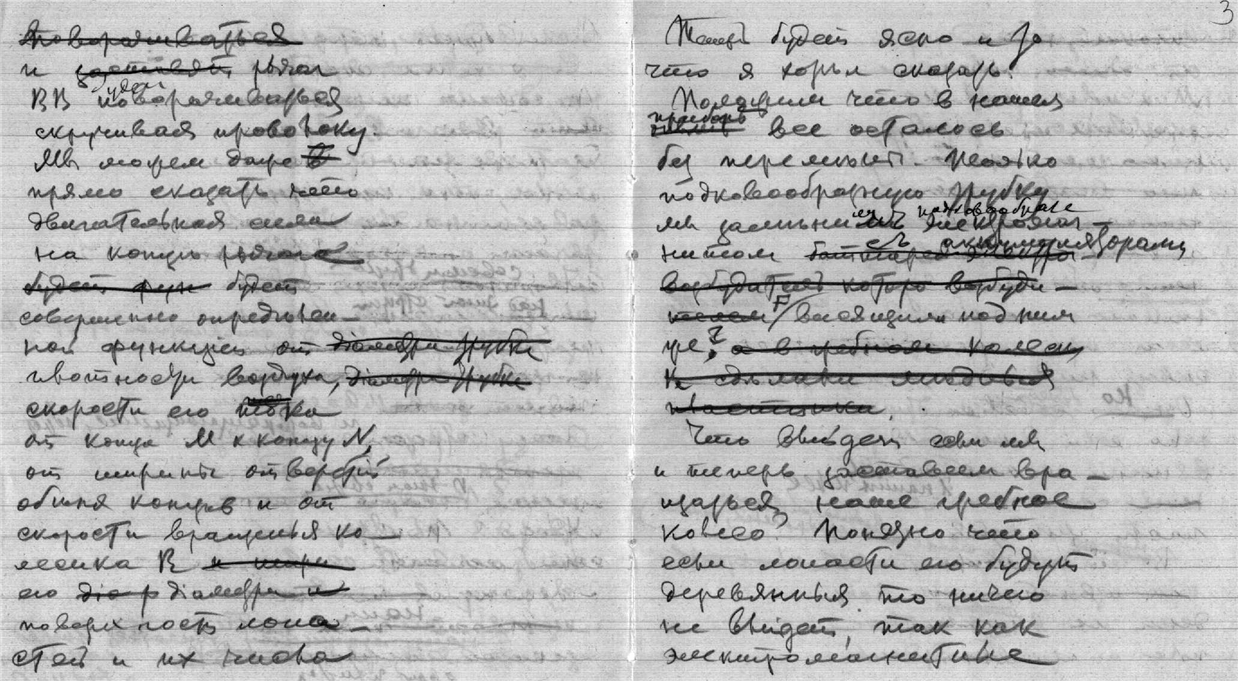 поворачиваться
и заставят рычаг
ВВ поворачиваться
скручивая проволоку.
Мы можем даже
прямо сказать что
двигательная сила
на концы рычага
будет фун будет
совершенно определен-
ной функцией от диаметра трубки
плотности воздуха, диаметра трубки
скорости его тока
от конца М к концу N,
от ширины отверстий
обоих концов и от
скорости вращенья ко-
лесика В и шири
его диаметра и
поверхность лопа-
стей и их числа
3
Теперь будет ясно и то
что я хотел сказать.
Положим что в нашем
приборе
все осталось
без перемены. Только
подковообразную трубку
мы заменили подковообразн
электромаг-
нитом с аккумуляторами
возбудитель которо возбуди-
телем F/ висящим под ним
же? а в гребном колесе
мы сделали медныя
пластинки.
Что выйдет если мы
и теперь заставим вра-
щаться наше гребное
колесо? Понятно что
если лопасти его будут
деревянныя то ничего
не выйдет, так как
электромагнитные